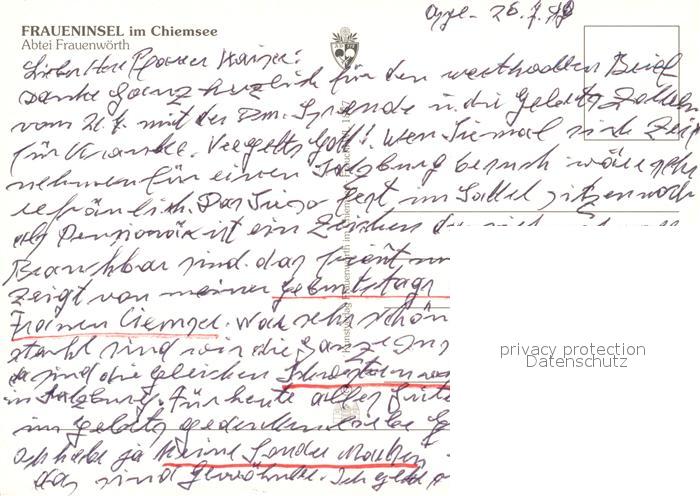 FRAUENINSEL im Chiemsee
Abtei Frauenwörth
26.7.
Lieber Herr Pfarrer
danke ganz herzlich für den wertvollen Brief
vom 21.7. mit der Dm. Spende u. die Gebets Zettel
für Kranke. Vergelts Gott! Wenn Sie mal sich Zeit
nehmen für einen Salzburg besuch wäre sehr
erfreulich. Das Sie so fest im Sattel sitzen noch
als Pensionär ist ein Zeichen
Brauchbar sind. das freut
zeigt von meiner Geburtstags
Frauen Ciemsee. War sehr schön
sind wir die ganze
da sind die gleichen
in Salzburg. Für heute alles Gute
im gebets gedenken liebe
Ich habe ja keine Sonder Marken
das sind Gewöhnliche. Ich
Kunstverlag Frauenwörth im Chiemsee
privacy protection
Datenschutz